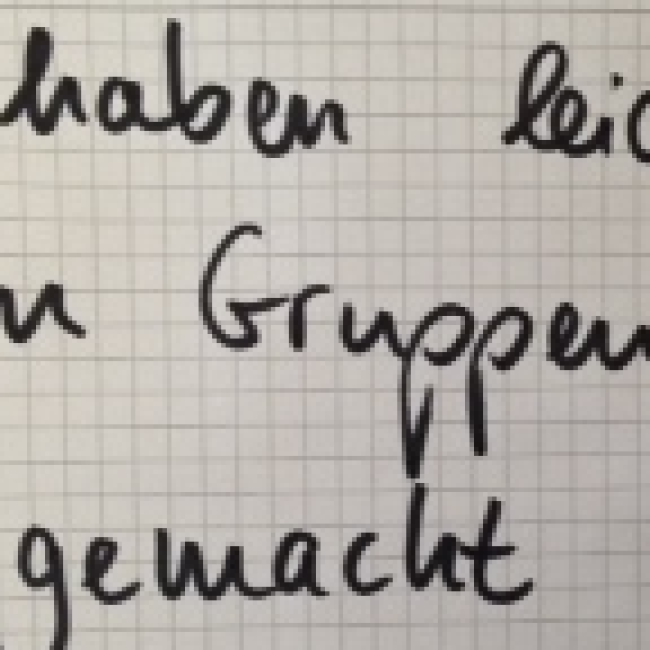 haben leic
n Gruppen
gemacht